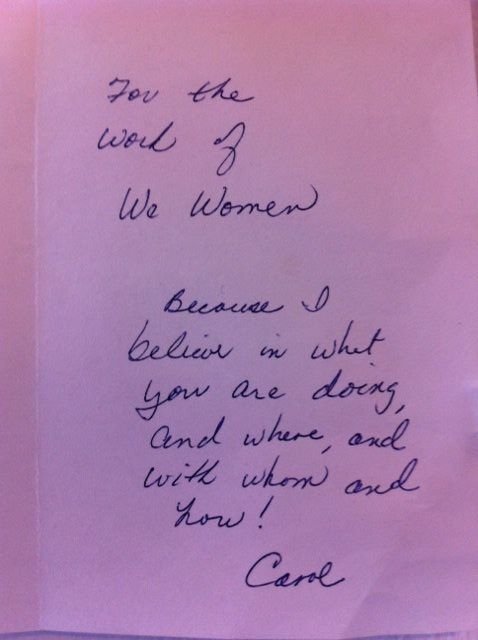 For the
work of
We Women
Because I
believe in what
you are doing,
and where, and
with whom and
how!
Carol